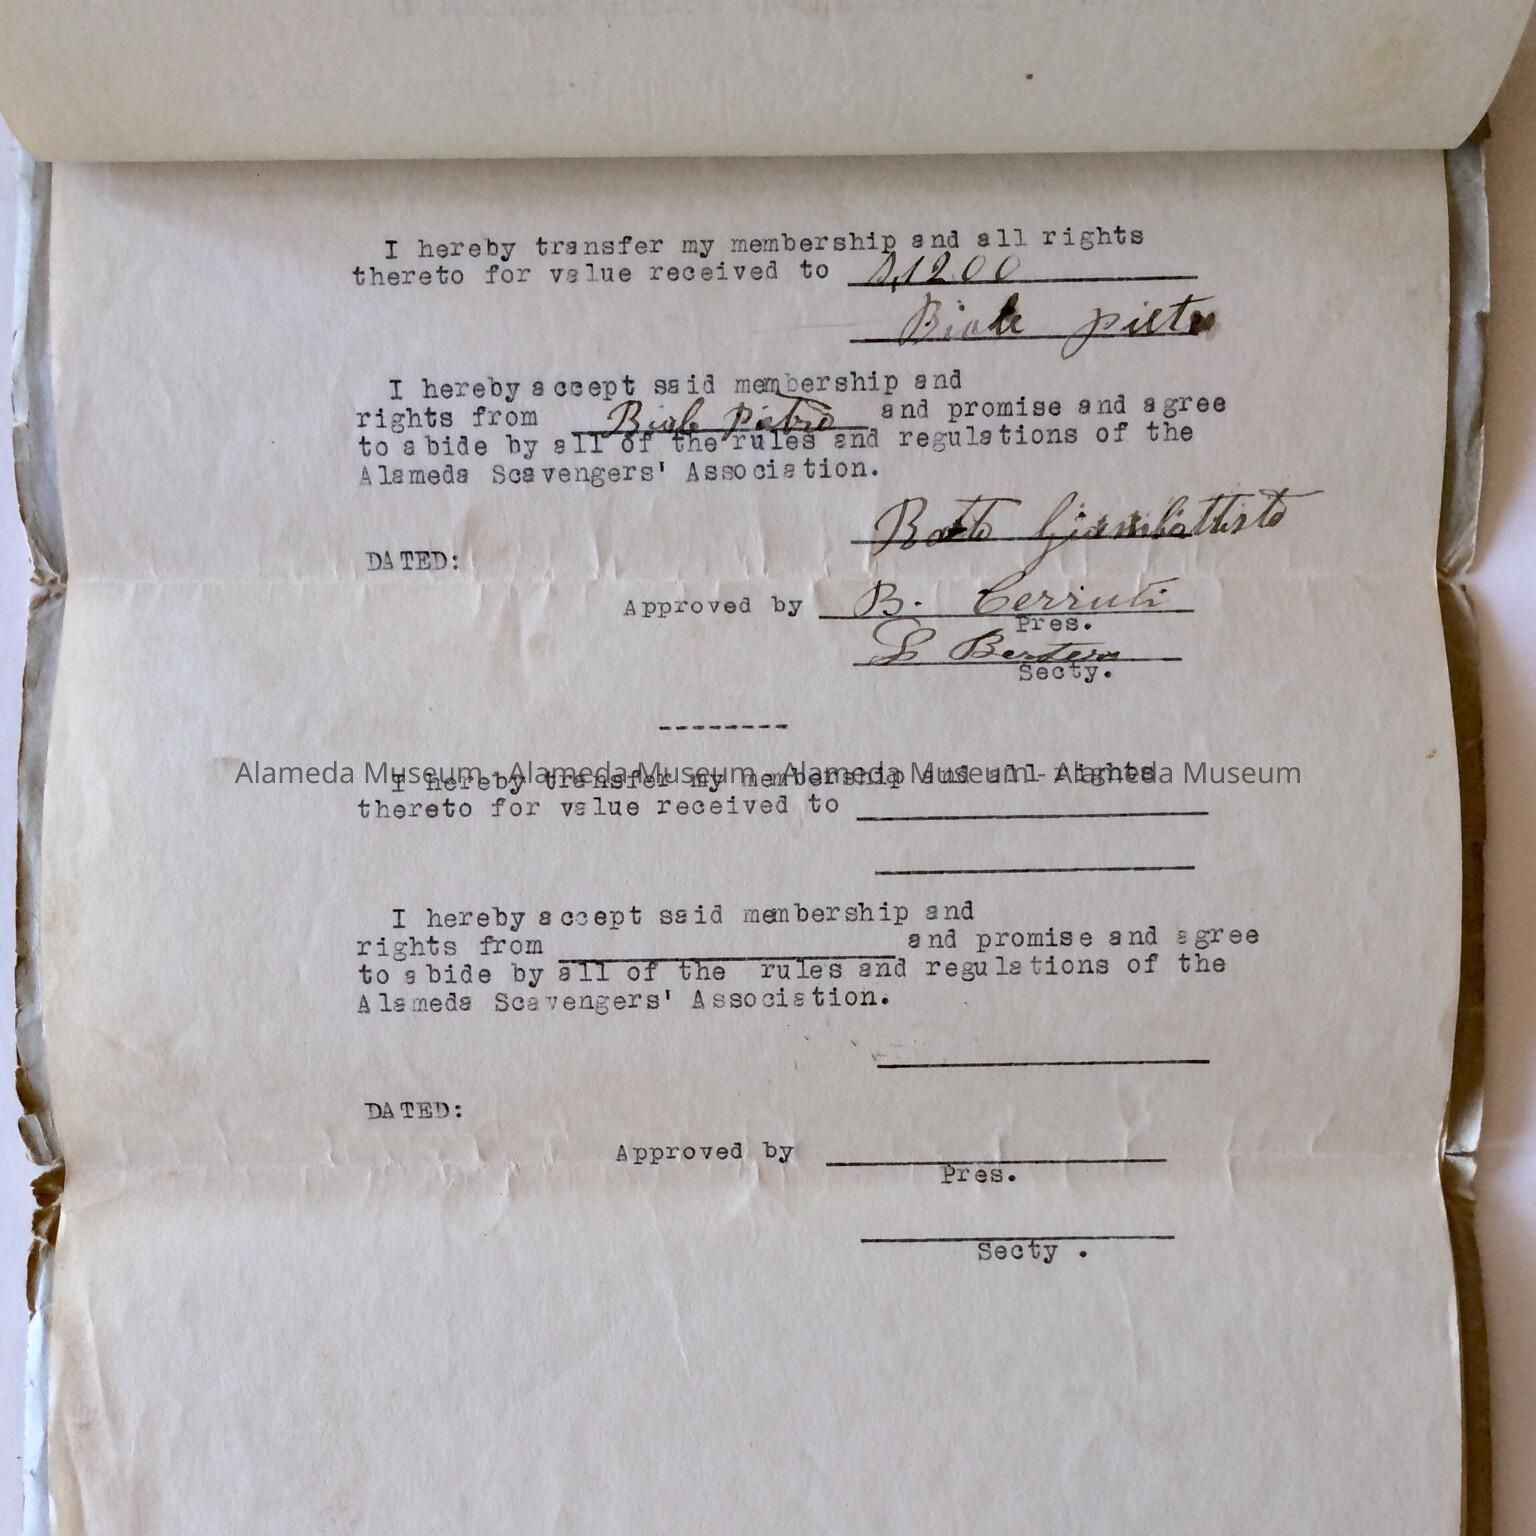 I hereby transfer my membership and all rights
thereto for value received to $1200
Biale pietro
I hereby accept said membership and
rights from Biale Pietro and promise and agree
to abide by all of the rules and regulations of the
Alameda Scavengers' Association.
Botto Giambattisto
DATED:
Approved by B. Cerruti
Pres.
Bertero
Secty.
--------
Alameda Museum - Alameda Museum - Alameda Museum - Alameda Museum
I hereby transfer my membership and all rights
thereto for value received to
I hereby accept said membership and
rights from and promise and agree
to abide by all of the rules and regulations of the
Alameda Scavengers' Association.
DATED:
Approved by
Pres.
Secty.